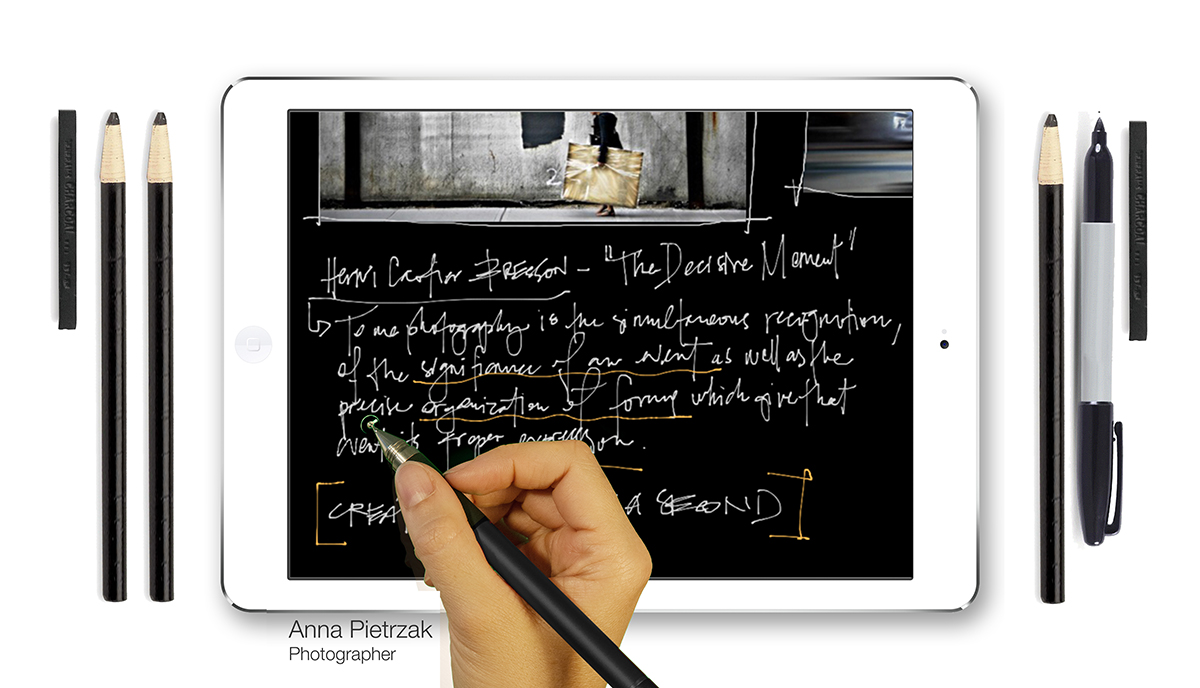 Henri Cartier BRESSON – "The Decisive Moment"
To me photography is the simultaneous recognition,
of the significance of an event as well as the
precise organization of forms which give that
event its proper expression.
[CREA A SECOND]
Anna Pietrzak
Photographer